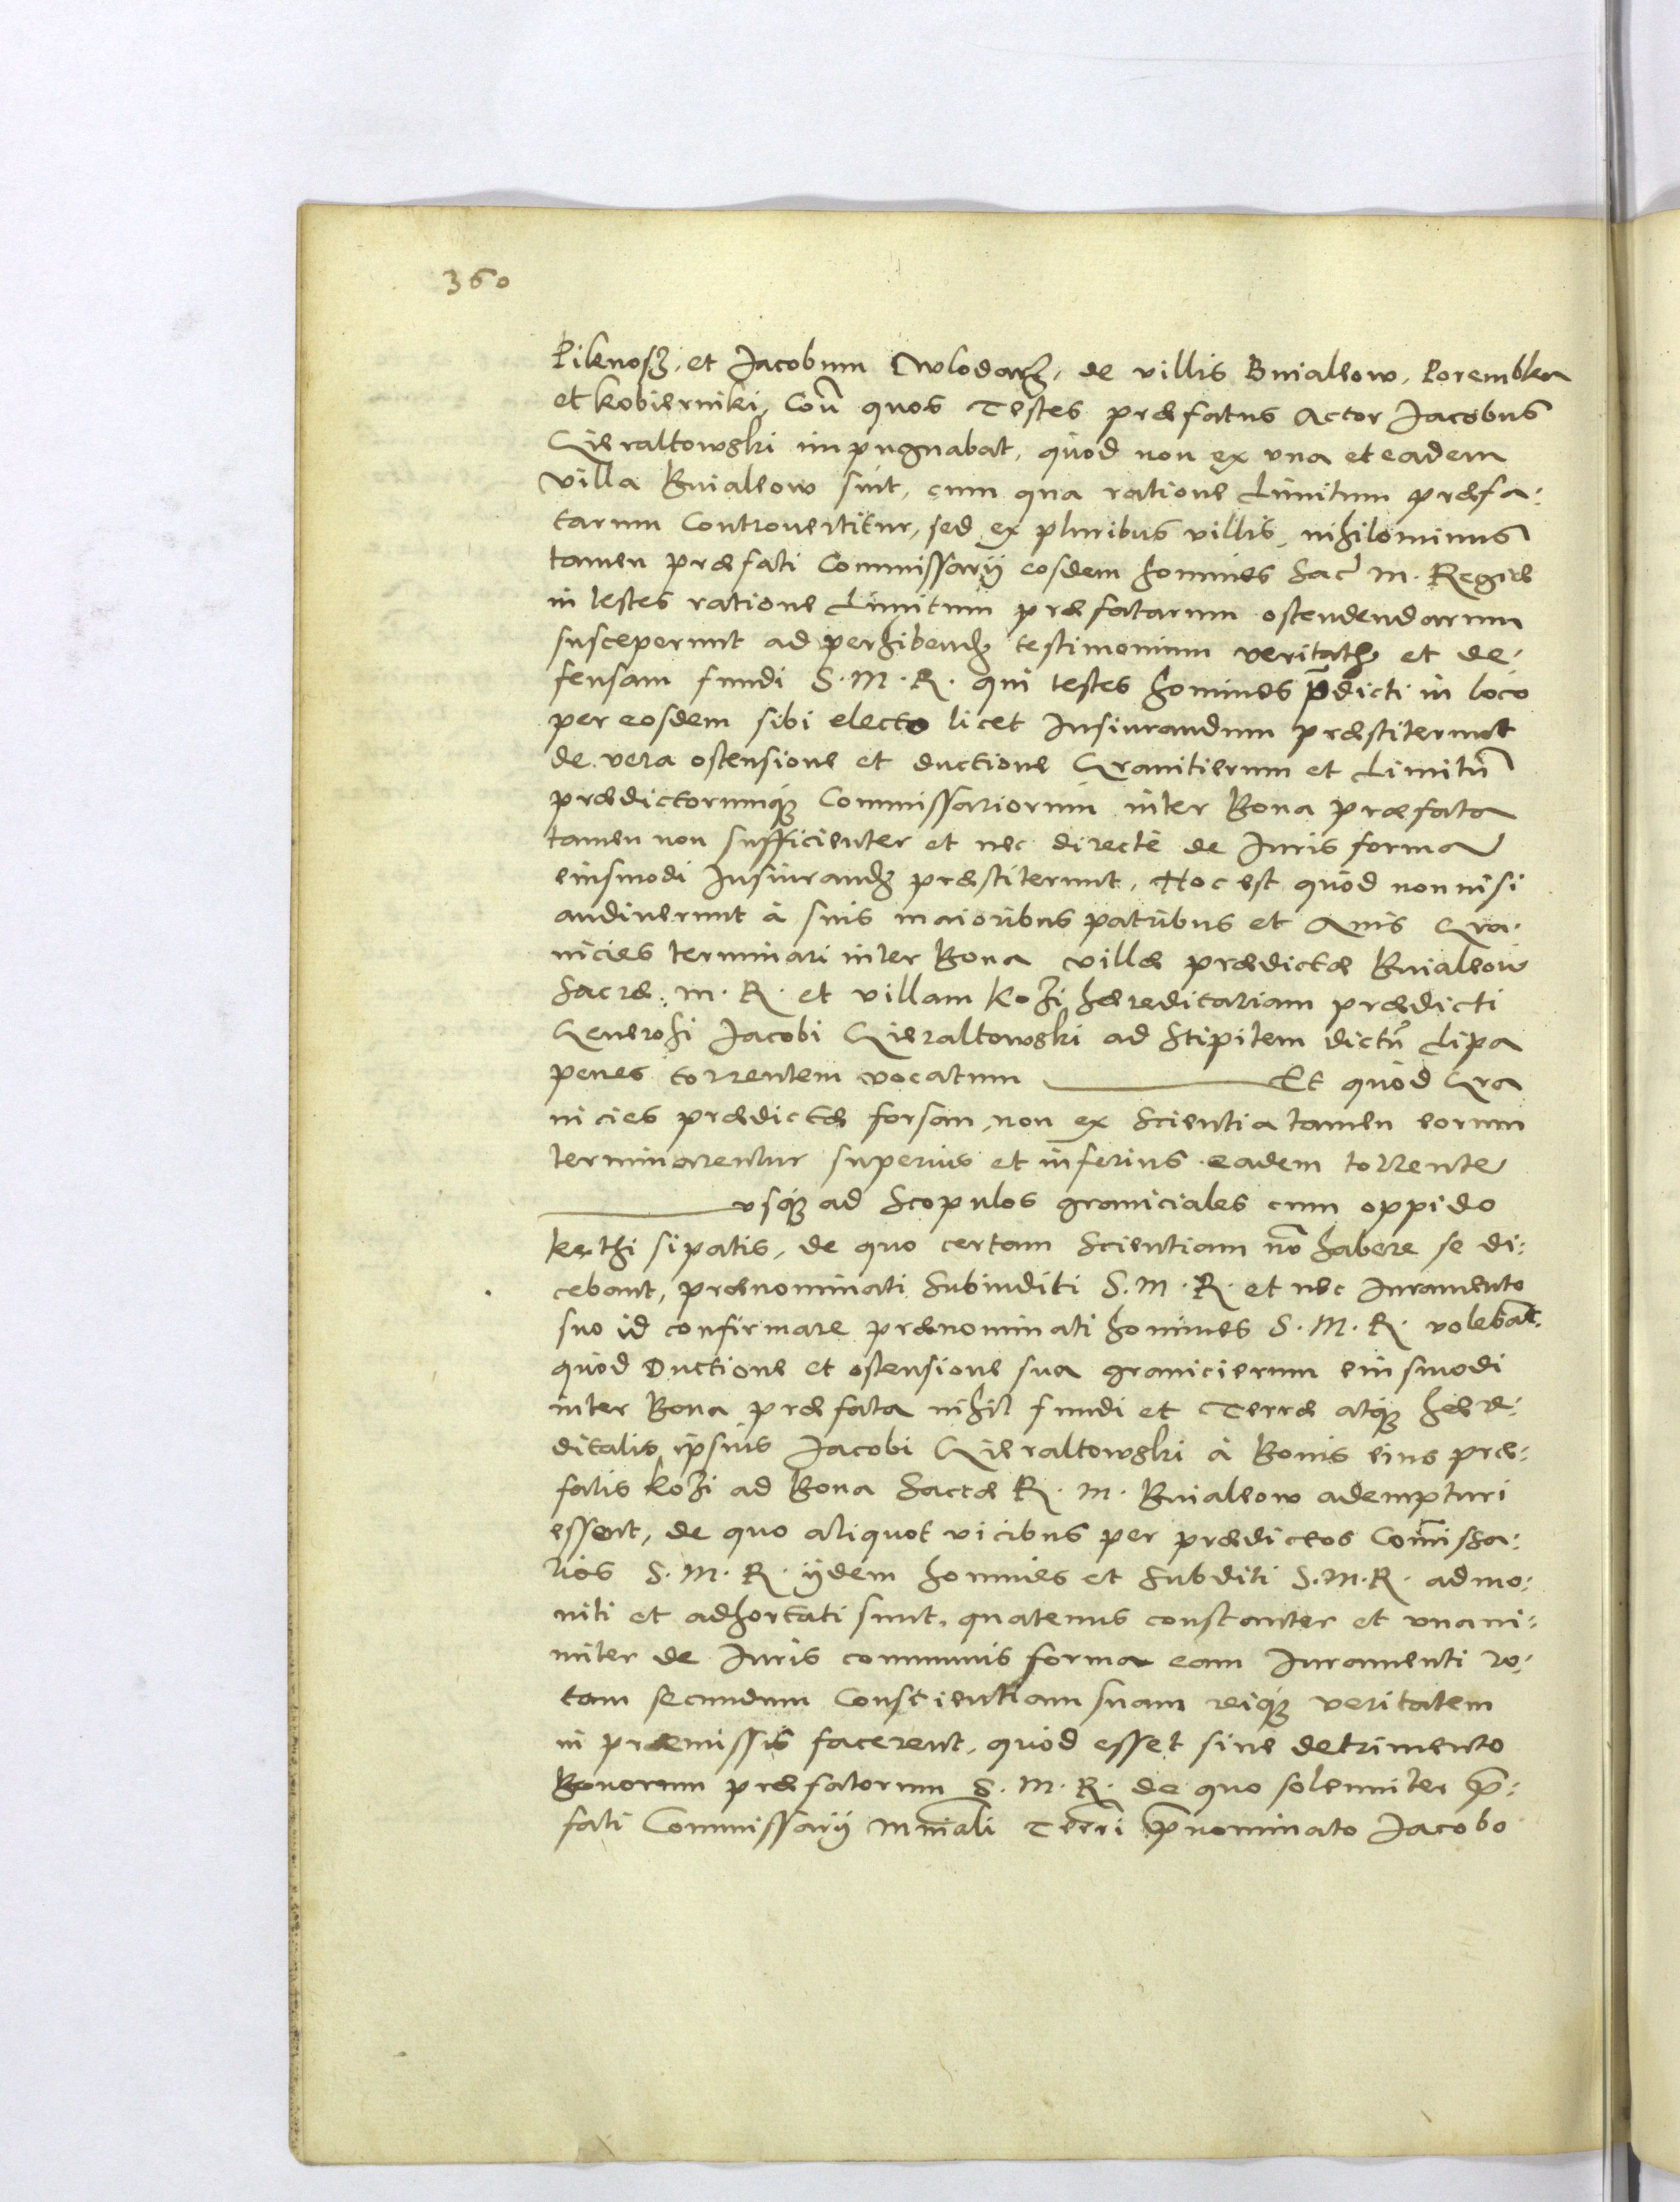 360
Piknosz, et Jacobum Wlodarz, de villis Buialeow, Porembka
et kobierniki, Coñ quos Testes præfatus Actor Jacobus
Gieraltowski impugnabat, quòd non ex vna et eadem
villa Buialeow sint, cum qua ratione Limitum præfa:
tarum Controuertitur, sed ex pluribus villis, nihilominus
tamen præfati Commissarÿ eosdem homines Sac̃ M. Regiæ
in testes ratione Limitum præfatarum ostendendarum
susceperunt ad perhibendȝ testimonium veritatȝ et de:
fensam fundi S. M. R. qui testes homines p̃dicti in loco
per eosdem sibi electo licet Jusiurandum præstiterunt
de vera ostensione et ductione Granitierum et Limitũ
prædictorumqȝ Commissariorum inter Bona præfata
tamen non sufficienter et nec directè de Juris forma
eiusmodi Jusiurandȝ præstiterunt, Hoc est quòd non nisi
audiuerunt à suis maioribus patribus et Auis Gra:
nicies terminari inter Bona villæ prædictæ Buialeow
Sacræ. M. R. et villam Kozi hæreditariam prædicti
Generosi Jacobi Gieraltowski ad Stipitem dictũ Lipa
penes torrentem vocatum ——— Et quòd Gra
nicies prædictæ forsan, non ex Scientia tamen eorum
terminarentur superius et inferius eadem torrente
——— vsqȝ ad Scopulos graniciales cum oppido
kethi sipatis, de quo certam Scientiam nõ habere se di:
cebant, prænominati Subinditi S. M. R. et nec Juramento
suo id confirmare prænominati homines S. M. R. volebãt.
quòd Ductione et ostensione sua granicierum eiusmodi
inter Bona præfata nihil fundi et Terræ atqȝ hære:
ditatis ipsius Jacobi Gieraltowski à Bonis eius præ:
fatis Kozi ad Bona Sacræ R. M. Buialeow adempturi
essent, de quo aliquot vicibus per prædictos Com̃issa:
rios S. M. R. ÿdem homines et Subditi S. M. R. admo:
niti et adhortati sunt, quatenus constanter et vnani:
miter de Juris communis forma eam Juramenti ro:
tam secundum Conscientiam suam reiqȝ veritatem
in præmissis facerent, quòd esset sine detrimento
Bonorum præfatorum S. M. R. de quo solenniter p̃:
fati Commissarÿ Mñiali Terr̃i p̃nominato Jacobo